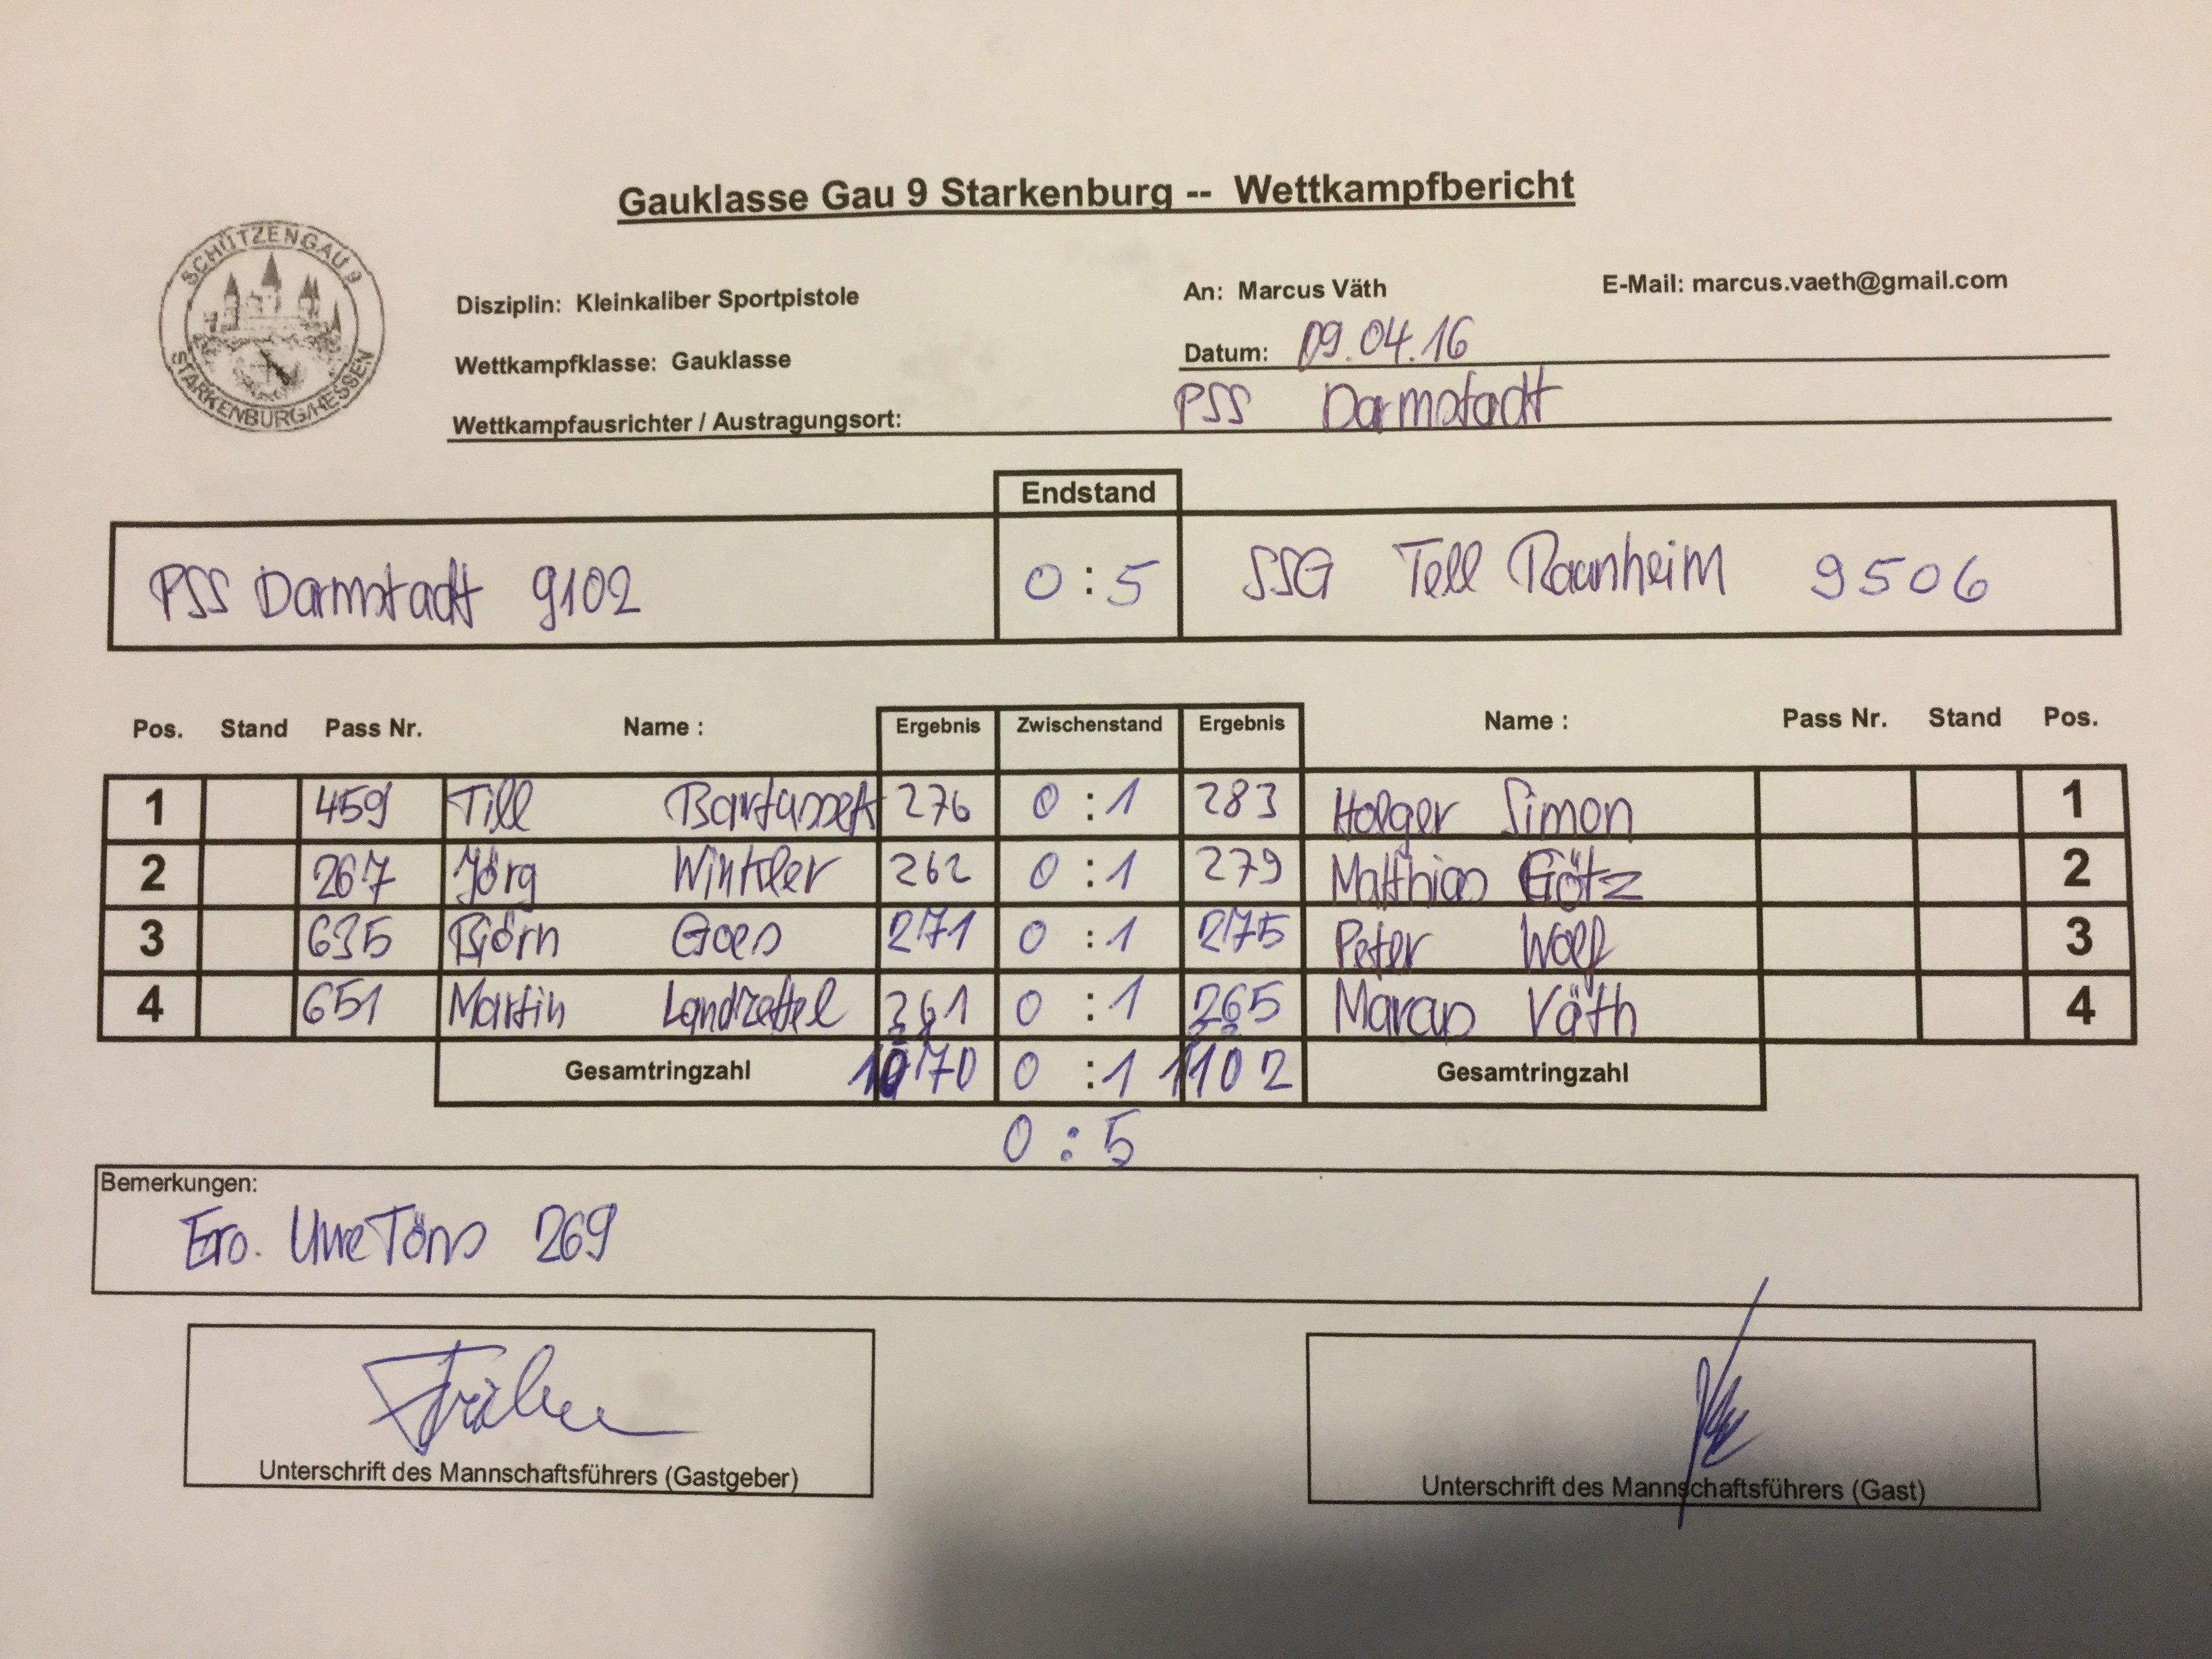 Gauklasse Gau 9 Starkenburg -- Wettkampfbericht
SCHÜTZENGAU 9
STARKENBURG/HESSEN
Disziplin: Kleinkaliber Sportpistole An: Marcus Väth E-Mail: marcus.vaeth@gmail.com
Wettkampfklasse: Gauklasse Datum: 09.04.16
Wettkampfausrichter / Austragungsort: PSS Darmstadt
Endstand
PSS Darmstadt 9102 0 : 5 SSG Tell Raunheim 9506
Pos. Stand Pass Nr. Name : Ergebnis Zwischenstand Ergebnis Name : Pass Nr. Stand Pos.
1 459 Till Bartussek 276 0 : 1 283 Holger Simon 1
2 267 Jörg Winkler 262 0 : 1 279 Matthias Götz 2
3 635 Björn Goes 271 0 : 1 275 Peter Wolf 3
4 651 Martin Landzettel 261 0 : 1 265 Marcus Väth 4
Gesamtringzahl 1070 0 : 1 1102 Gesamtringzahl
0 : 5
Bemerkungen:
Ers. Uwe Töns 269
Unterschrift des Mannschaftsführers (Gastgeber) Unterschrift des Mannschaftsführers (Gast)